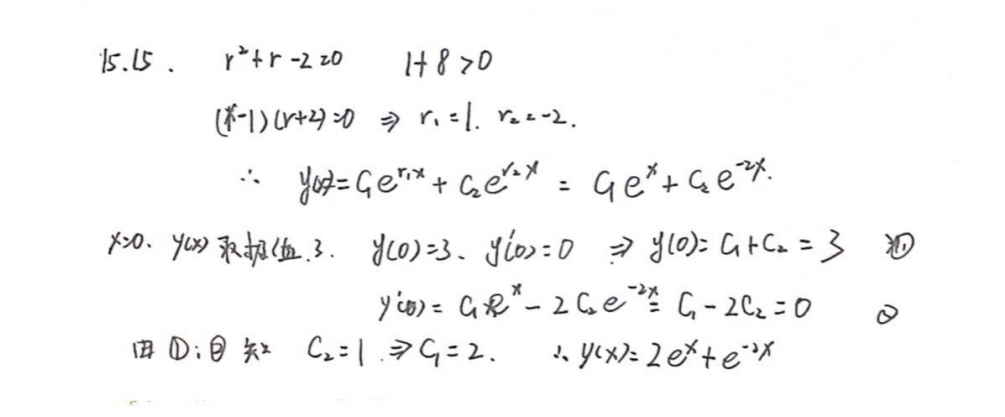 15.15. r²+r-2=0 1+8>0
(r-1)(r+2)=0 ⇒ r₁=1. r₂=-2.
∴ y(x)=C₁e^{r₁x}+C₂e^{r₂x} = C₁e^x+C₂e^{-2x}.
x=0. y(x)取极值3. y(0)=3、y'(0)=0 ⇒ y(0)=C₁+C₂=3 ①
y'(0)=C₁e^x-2C₂e^{-2x}=C₁-2C₂=0 ②
由①;②知 C₂=1.⇒C₁=2. ∴y(x)=2e^x+e^{-2x}